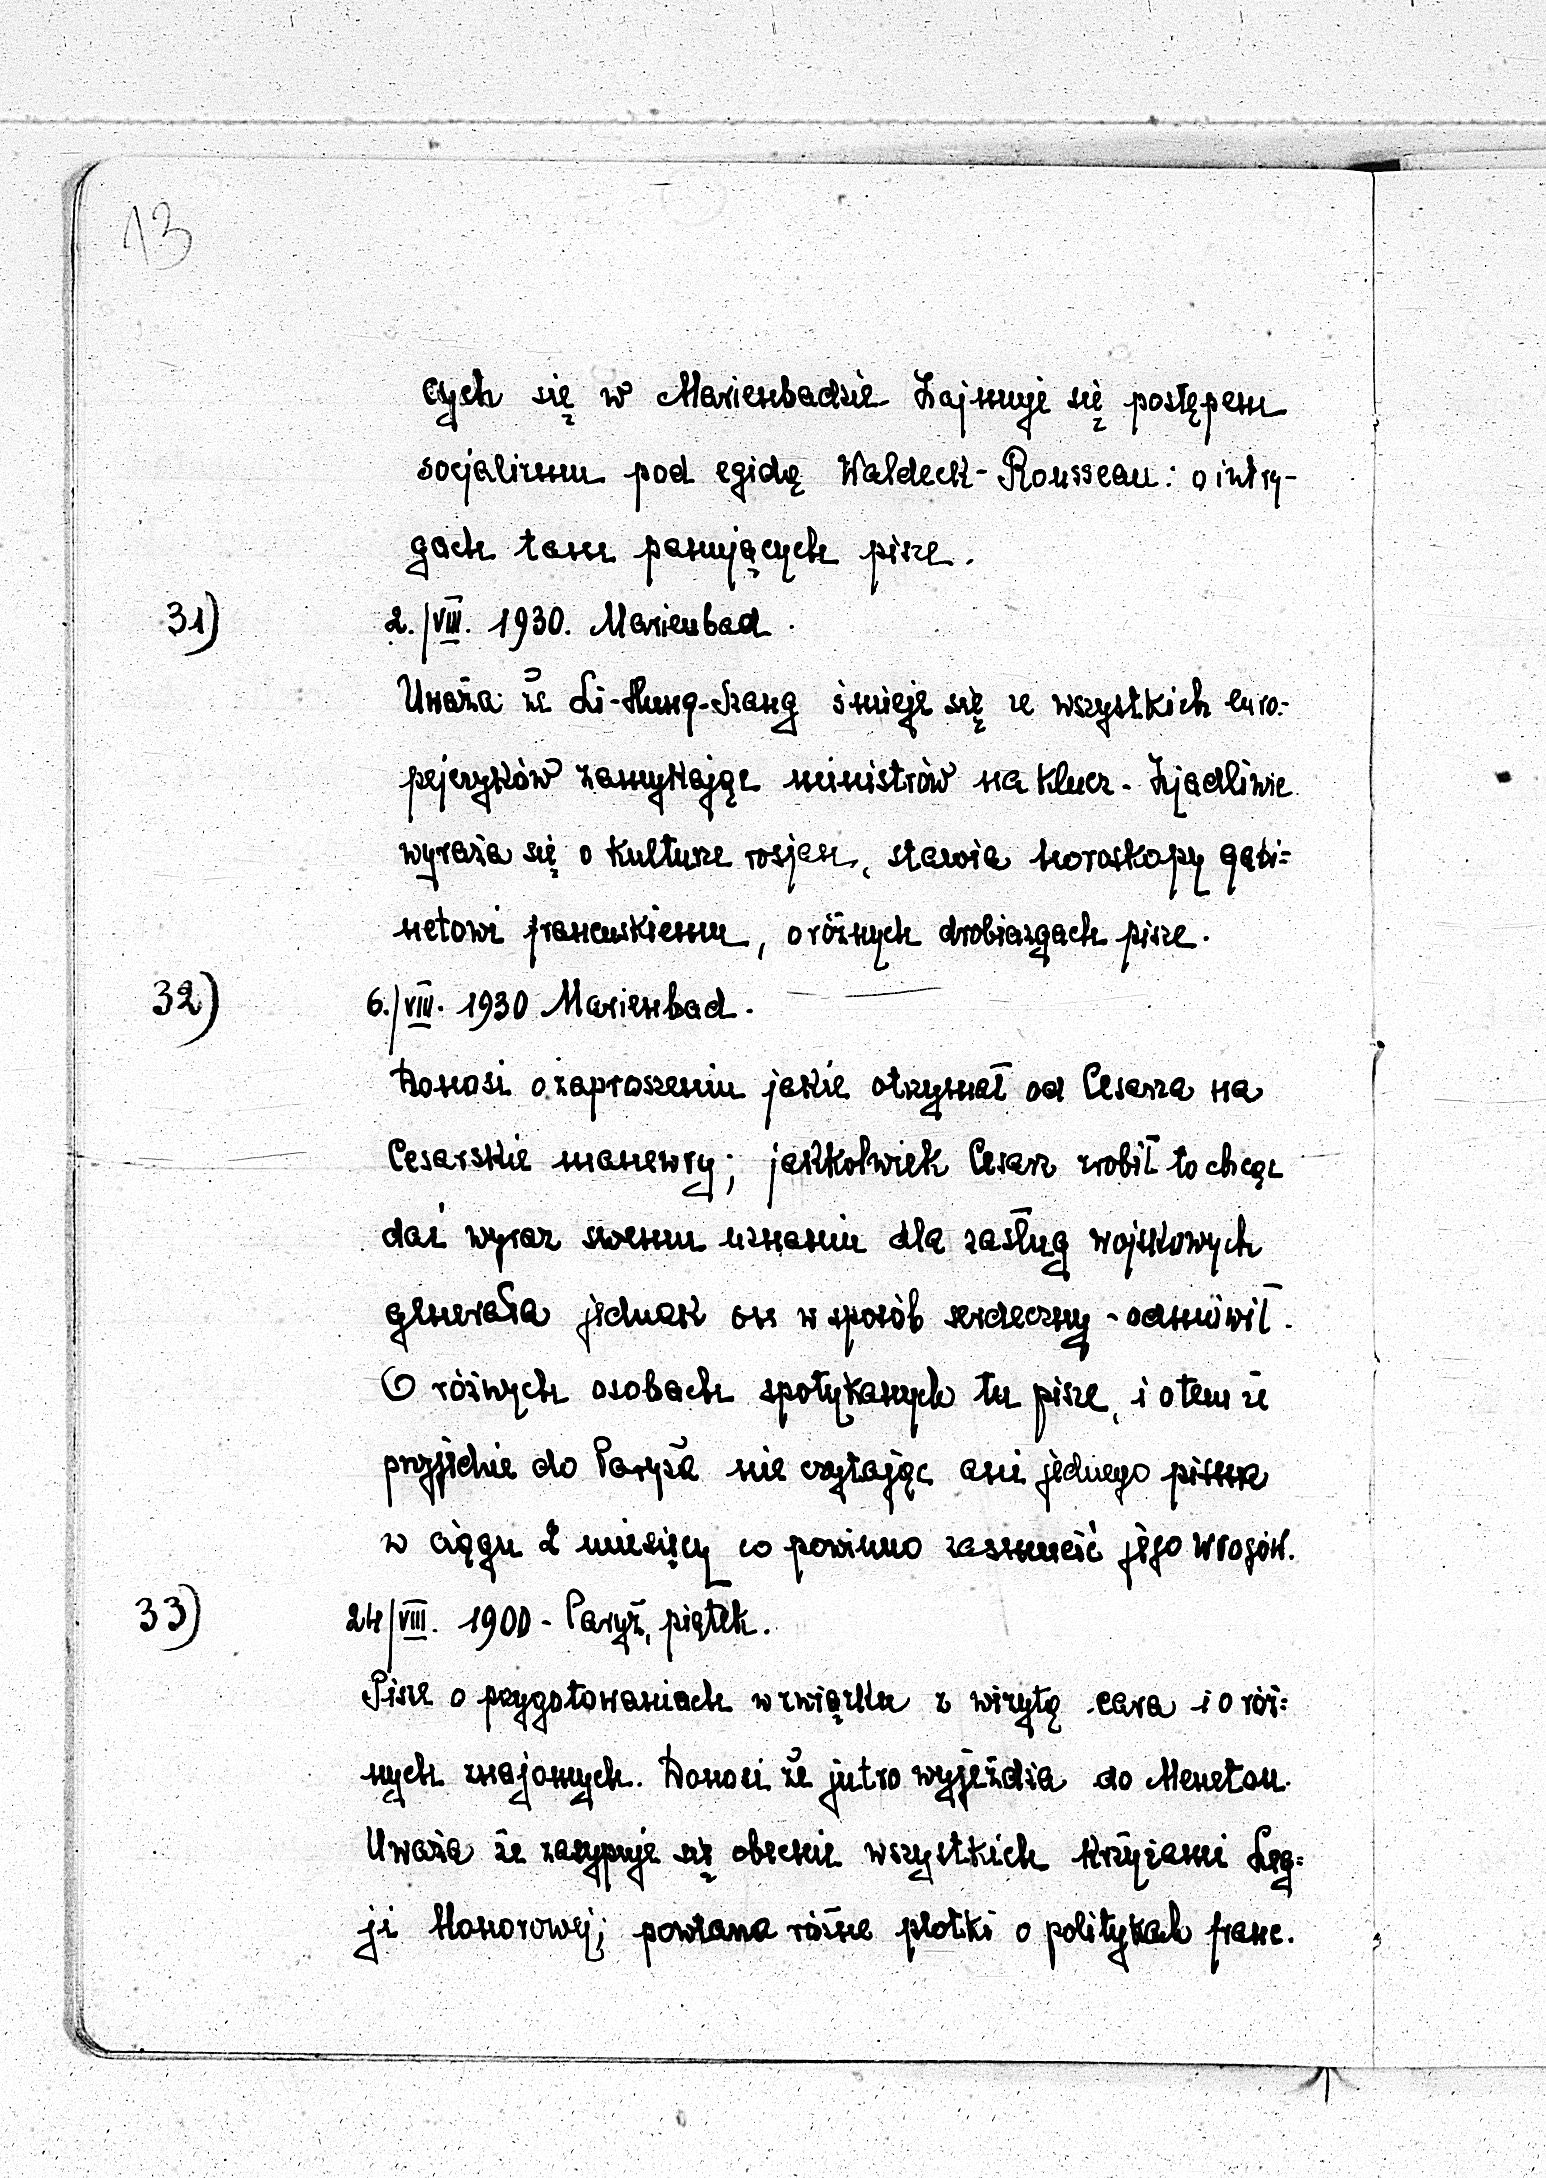 13
cych się w Marienbadzie Zajmuje się postępem
socjalizmu pod egidą Waldeck-Rousseau: o intry-
gach tam panujących pisze.
31) 2./VIII. 1930. Marienbad.
Uważa że Li-Hung-Szang śmieje się ze wszystkich euro-
pejczyków zamykając ministrów na klucz. Zjadliwie
wyraża się o kulturze rosjan, stawia horoskopy gabi=
netowi francuskiemu, o różnych drobiazgach pisze.
32) 6./VIII. 1930 Marienbad.
Donosi o zaproszeniu jakie otrzymał od Cesarza na
Cesarskie manewry; jakkolwiek Cesarz zrobił to chcąc
dać wyraz swemu uznaniu dla zasług wojskowych
generała jednak on w sposób serdeczny - odmówił.
O różnych osobach spotykanych tu pisze, i o tem że
przyjedzie do Paryża nie czytając ani jednego pisma
w ciągu 2 miesięcy co powinno zasmucić jego wrogów.
33) 24/VIII. 1900 - Paryż, piątek.
Pisze o przygotowaniach w związku z wizytą cara i o róż=
nych znajomych. Donosi że jutro wyjeżdża do Meneton.
Uważa że zasypuje się obecnie wszystkich krzyżami Leg=
ji Honorowej; powtarza różne plotki o politykach franc.